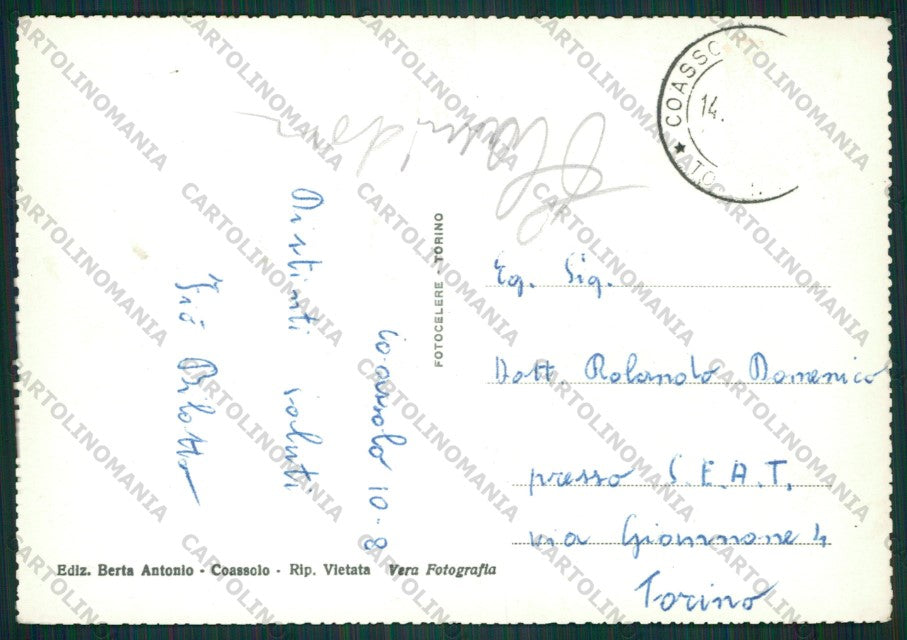 COASSO
14.
TO
FOTOCELERE - TORINO
Coassolo 10-8
Distinti saluti
Pilotto
Eg. Sig.
Dott. Rolando Domenico
presso S.E.A.T.
via Giannone 4
Torino
Ediz. Berta Antonio - Coassolo - Rip. Vietata Vera Fotografia
CARTOLINOMANIA